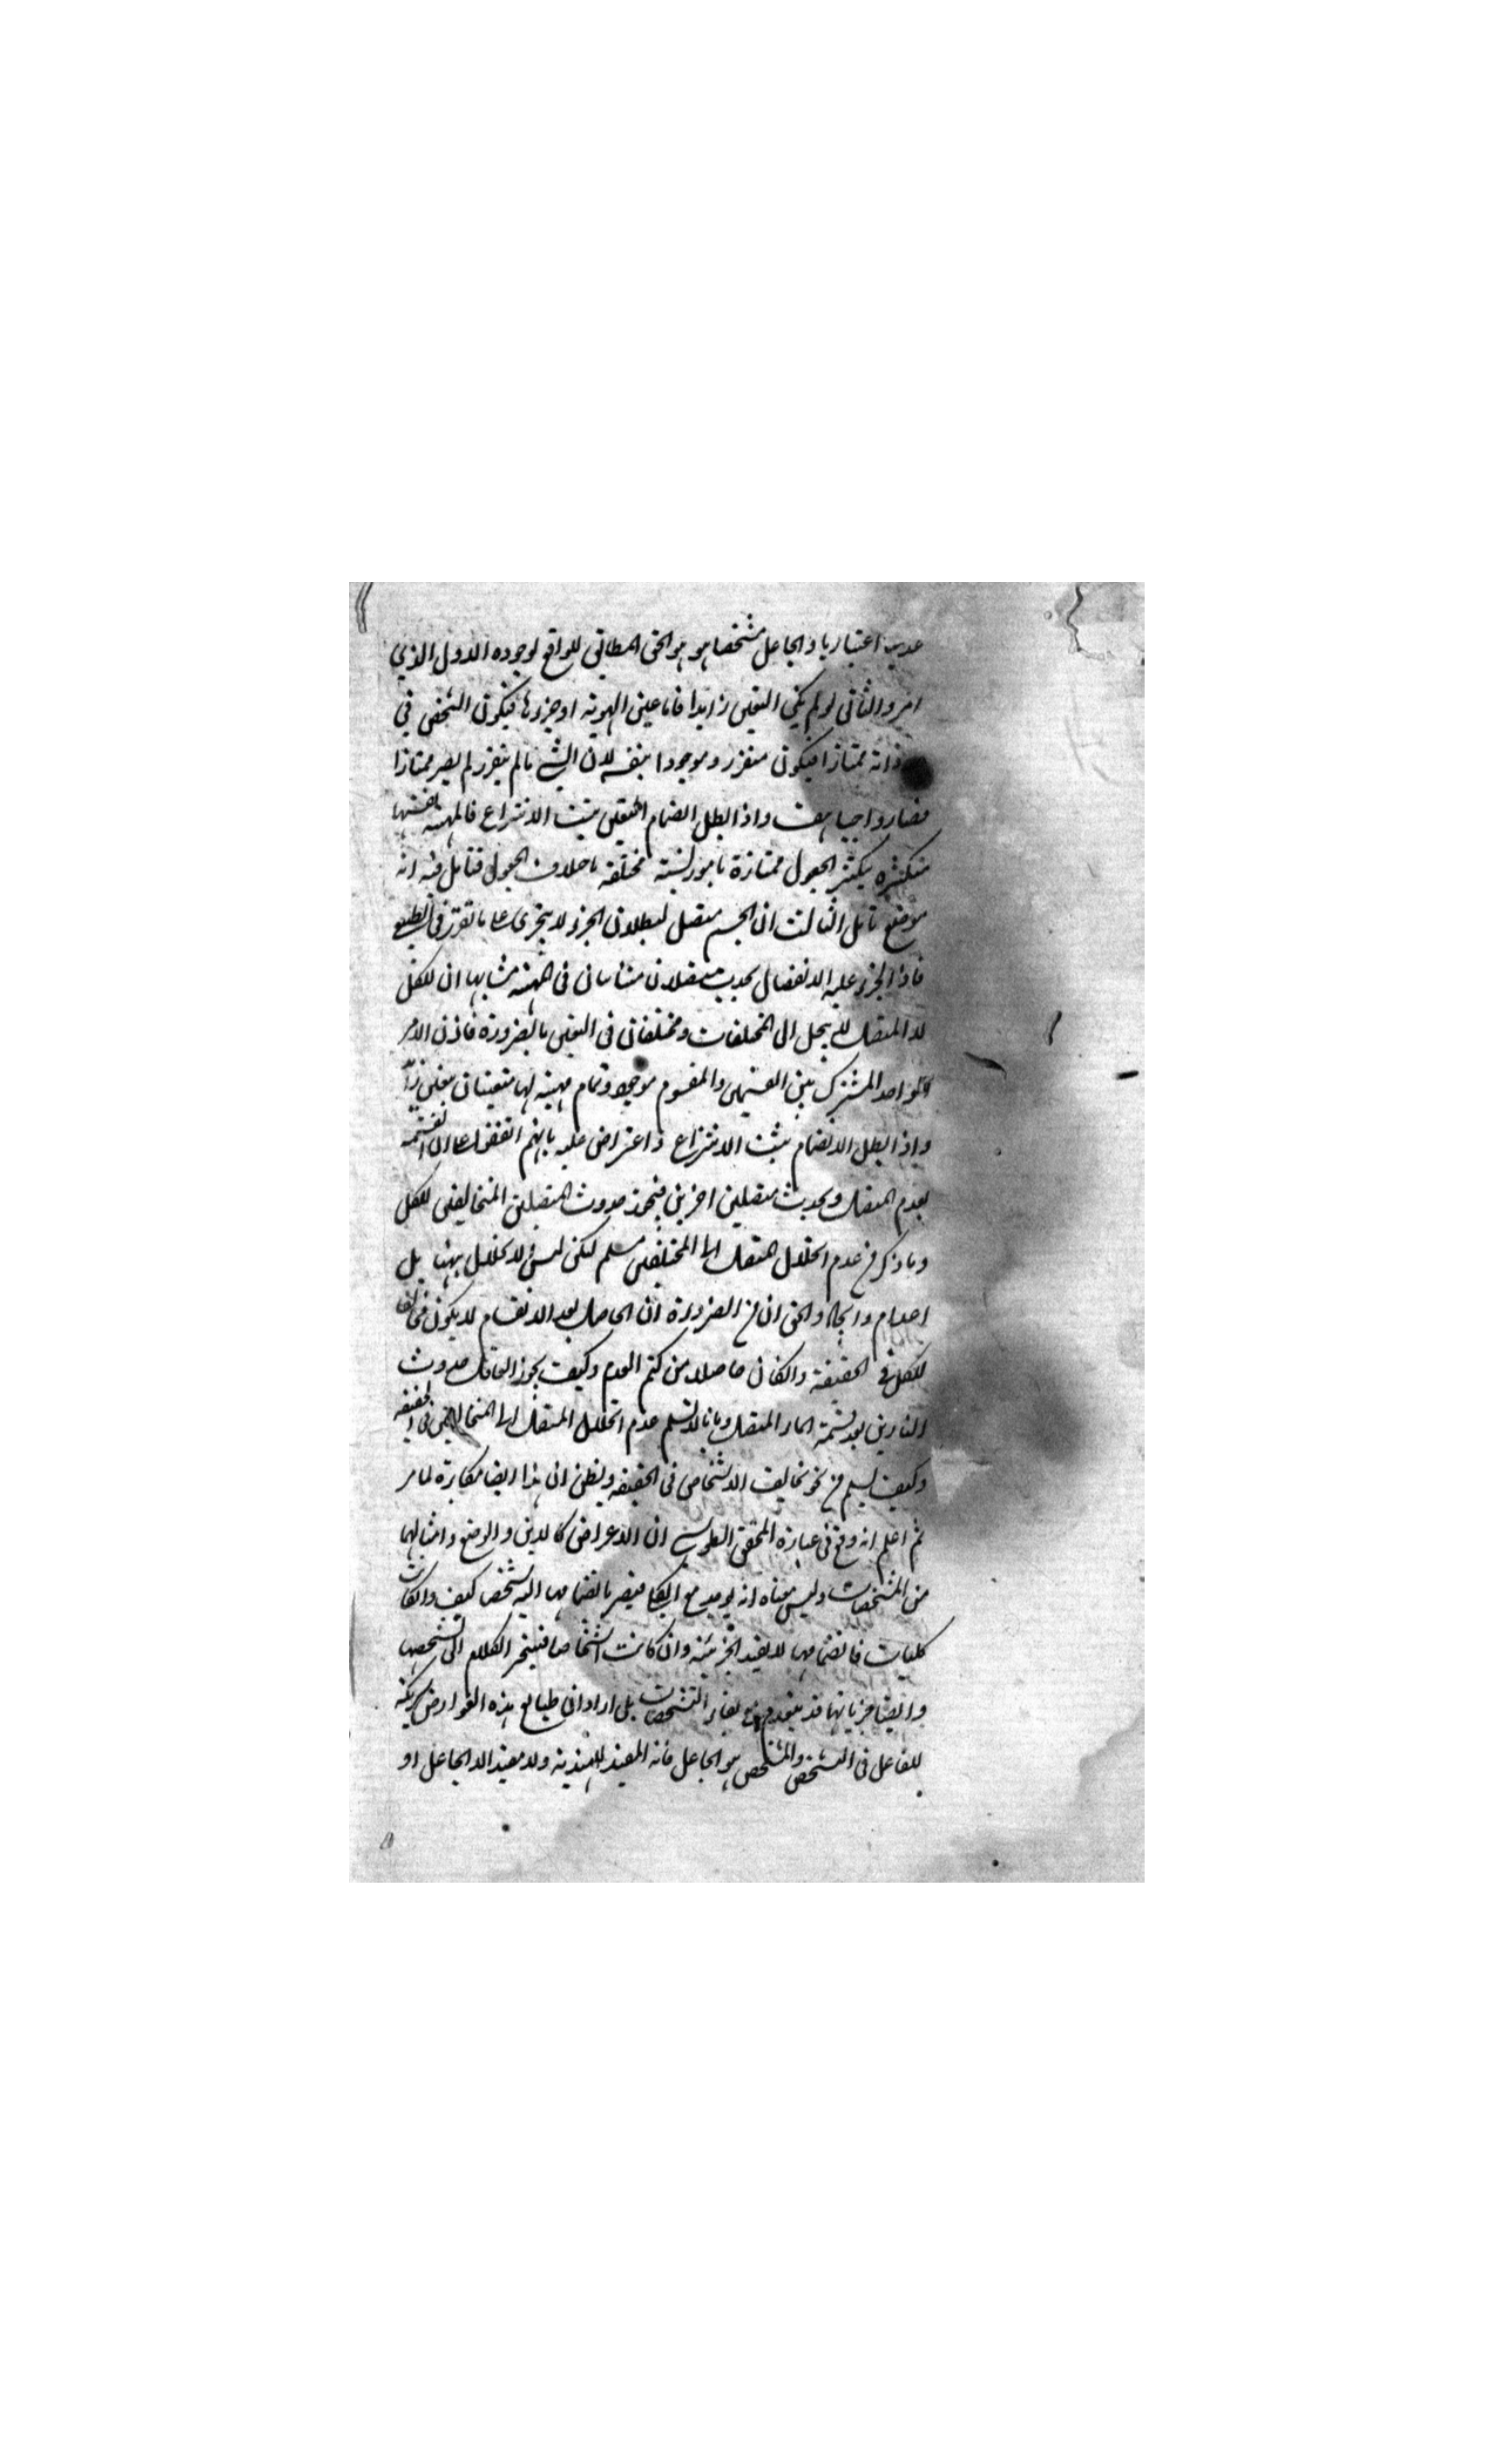 اعتباريا والجاعل مشخصا هو هو الحق المطابق للواقع لوجوه الاول الذي
امر والثاني لو لم يكن التعين زايدا فاما عين الهوية او جزؤها فيكون الشخص في
ذاته ممتازا فيكون متقررا وموجودا بنفسه لان الشي ما لم يتقرر لم يصر ممتازا
فصار واجبا هف واذا بطل انضمام التعين ثبت الانتزاع فالمهية بنفسها
متكثرة بتكثر الجعول ممتازة بامور نسبته مختلفة باختلاف الجعول فتامل فيه انه
موضع تامل الثالث ان الجسم متصل لبطلان الجزء لا يتجزى على ما تقرر في الطبيعي
فاذا عليه الانفصال يحدث متصلان متناسبان في المهية مشابها ان للكل
لا المتصل لا ينحل الى المختلفات ومختلفان في التعين بالضرورة فاذن الامر
الواحد المشترك بين القسمين والمقسوم موجود وتمام مهية لها متعينان بتعين زائد
واذا بطل الانضمام ثبت الانتزاع واعترض عليه بانهم اتفقوا على ان القسمة
يعدم المتصل ويحدث متصلين اخرين فيجوز حدوث المتصلين المتخالفين للكل
وما ذكر من عدم انحلال المتصل الى المختلفين مسلم لكن ليس الانحلال ههنا بل
اعدام وايجاد والحق ان من الضرورة ان الحاصل بعد الانقسام لا يكون مخالفا
للكل في الحقيقة والكان حاصلا من كتم العدم وكيف يجوز العاقل حدوث
النارين بعد قسمة الماء المتصل وبانا لا نسلم عدم انحلال المتصل الى المتخالفين في الحقيقة
وكيف يسلم من نحو تخالف الاشخاص في الحقيقة ويظن ان هذا ايضا مكابرة لما مر
ثم اعلم انه وقع في عبارة المحقق الطوسي ان الاعراض كالاين والوضع وامثالهما
من المشخصات وليس معناه انه يوجد مع فيصير بانضمامها اليه شخص كيف والكانت
كليات فانضمامها لا يفيد الجزئية وان كانت اشخاصا فينجر الكلام الى تشخصها
وايضا جزئياتها قد ينعدم مع بقاء التشخصات بل اراد ان طبايع هذه العوارض شريكة
للفاعل في التشخص والمشخص هو الجاعل فانه المفيد للهذية ولا مفيد الا الجاعل او